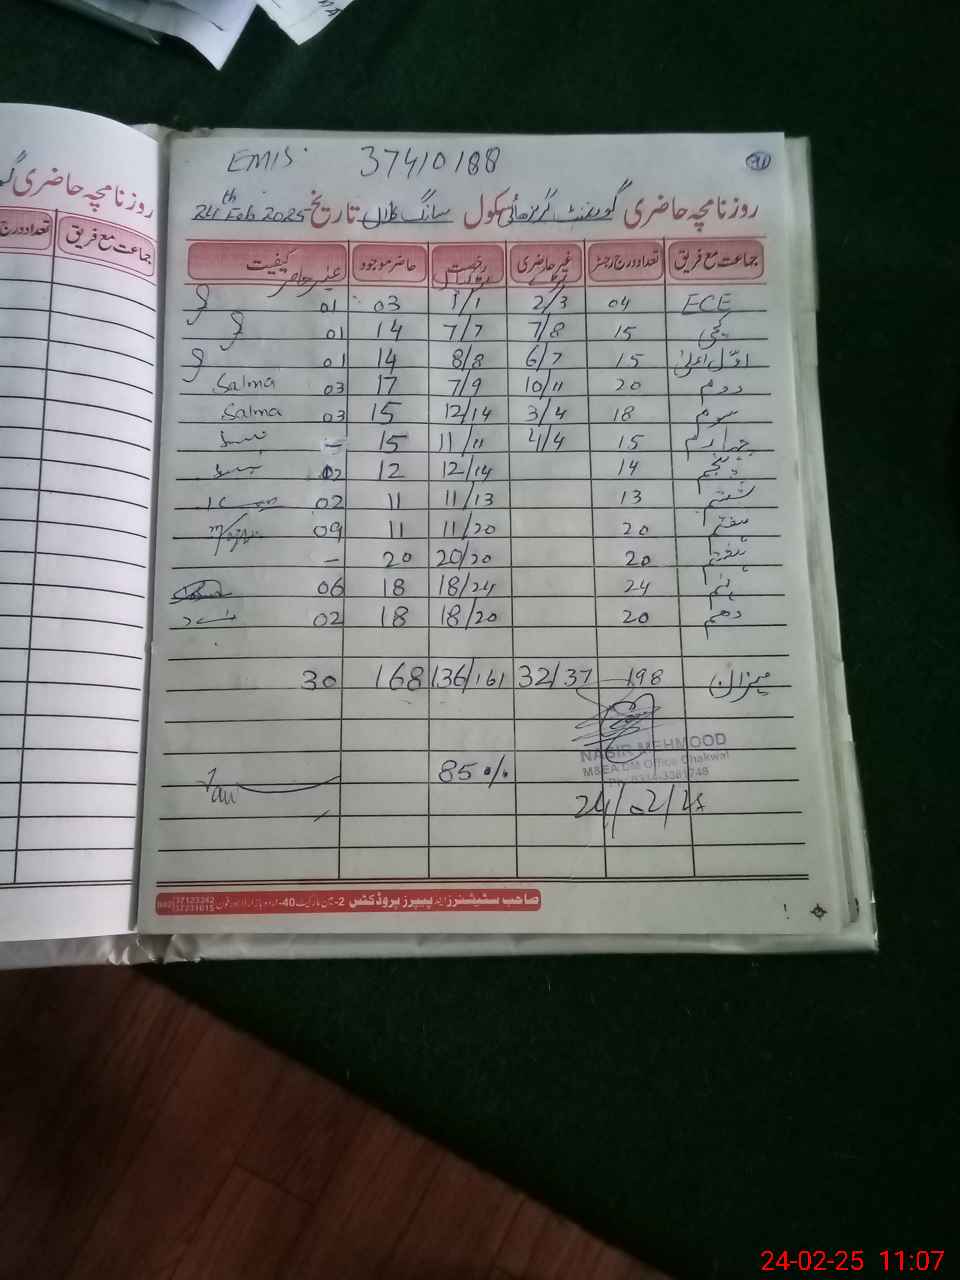 EMIS. 37410188
روزنامچہ حاضری گورنمنٹ گرلز ہائی سکول سانگ کلاں تاریخ 24th Feb 2025
جماعت مع فریق تعداد درج رجسٹر غیر حاضری رخصت حاضر موجود کیفیت غیر حاضر
ECE 04 2/3 1/1 03 01
کچی 15 7/8 7/7 14 01
اول اعلیٰ 15 6/7 8/8 14 01
دوم 20 10/11 7/9 17 03 Salma
سوم 18 3/4 12/14 15 03 Salma
چہارم 15 4/4 11/11 15 -
پنجم 14 12/14 12 02
ششم 13 11/13 11 02
ہفتم 20 11/20 11 09
ہشتم 20 20/20 20 -
نہم 24 18/24 18 06
دہم 20 18/20 18 02
میزان 198 32/37 136/161 168 30
NASIR MEHMOOD
M&EA DM Office Chakwal
85 %
24/02/25
صاحب سٹیشنرز اینڈ پیپرز پروڈکٹس 2-مین مارکیٹ 40-اردو بازار لاہور فون
37123342
37231015
روزنامچہ حاضری
جماعت مع فریق تعداد درج
24-02-25 11:07